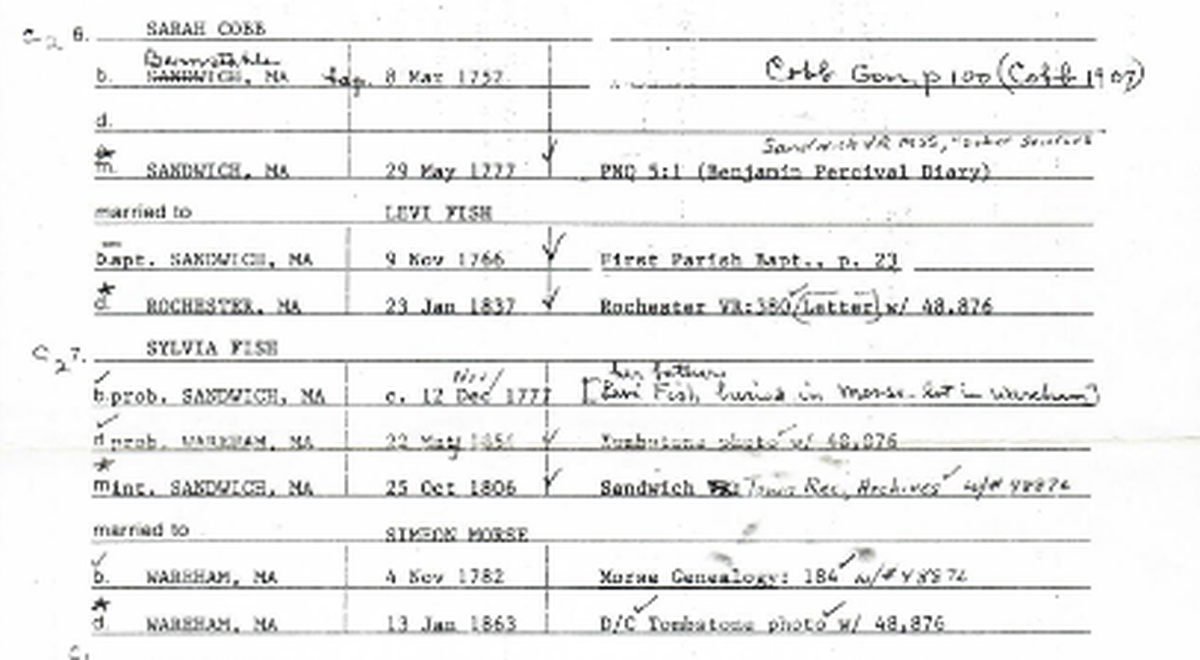 C2 6. SARAH COBB
Barnstable
b. SANDWICH, MA bap. 8 Mar 1757 Cobb Gen, p 100 (Cobb 1907)
d.
Sandwich VR MSS,
m. SANDWICH, MA 29 May 1777 PNQ 5:1 (Benjamin Percival Diary)
married to LEVI FISH
bapt. SANDWICH, MA 9 Nov 1766 First Parish Bapt., p. 23
d. ROCHESTER, MA 23 Jan 1837 Rochester VR:380 (Letter) w/ 48,876
C2 7. SYLVIA FISH
Nov/ her father
b. prob. SANDWICH, MA c. 12 Dec 1777 [Levi Fish buried in Morse lot in Wareham]
d. prob. WAREHAM, MA 22 May Tombstone photo w/ 48,876
m int. SANDWICH, MA 25 Oct 1806 Sandwich Town Rec, Archives w/# 48876
married to SIMEON MORSE
b. WAREHAM, MA 4 Nov 1782 Morse Genealogy: 184 w/# 48876
d. WAREHAM, MA 13 Jan 1863 D/C Tombstone photo w/ 48,876
C